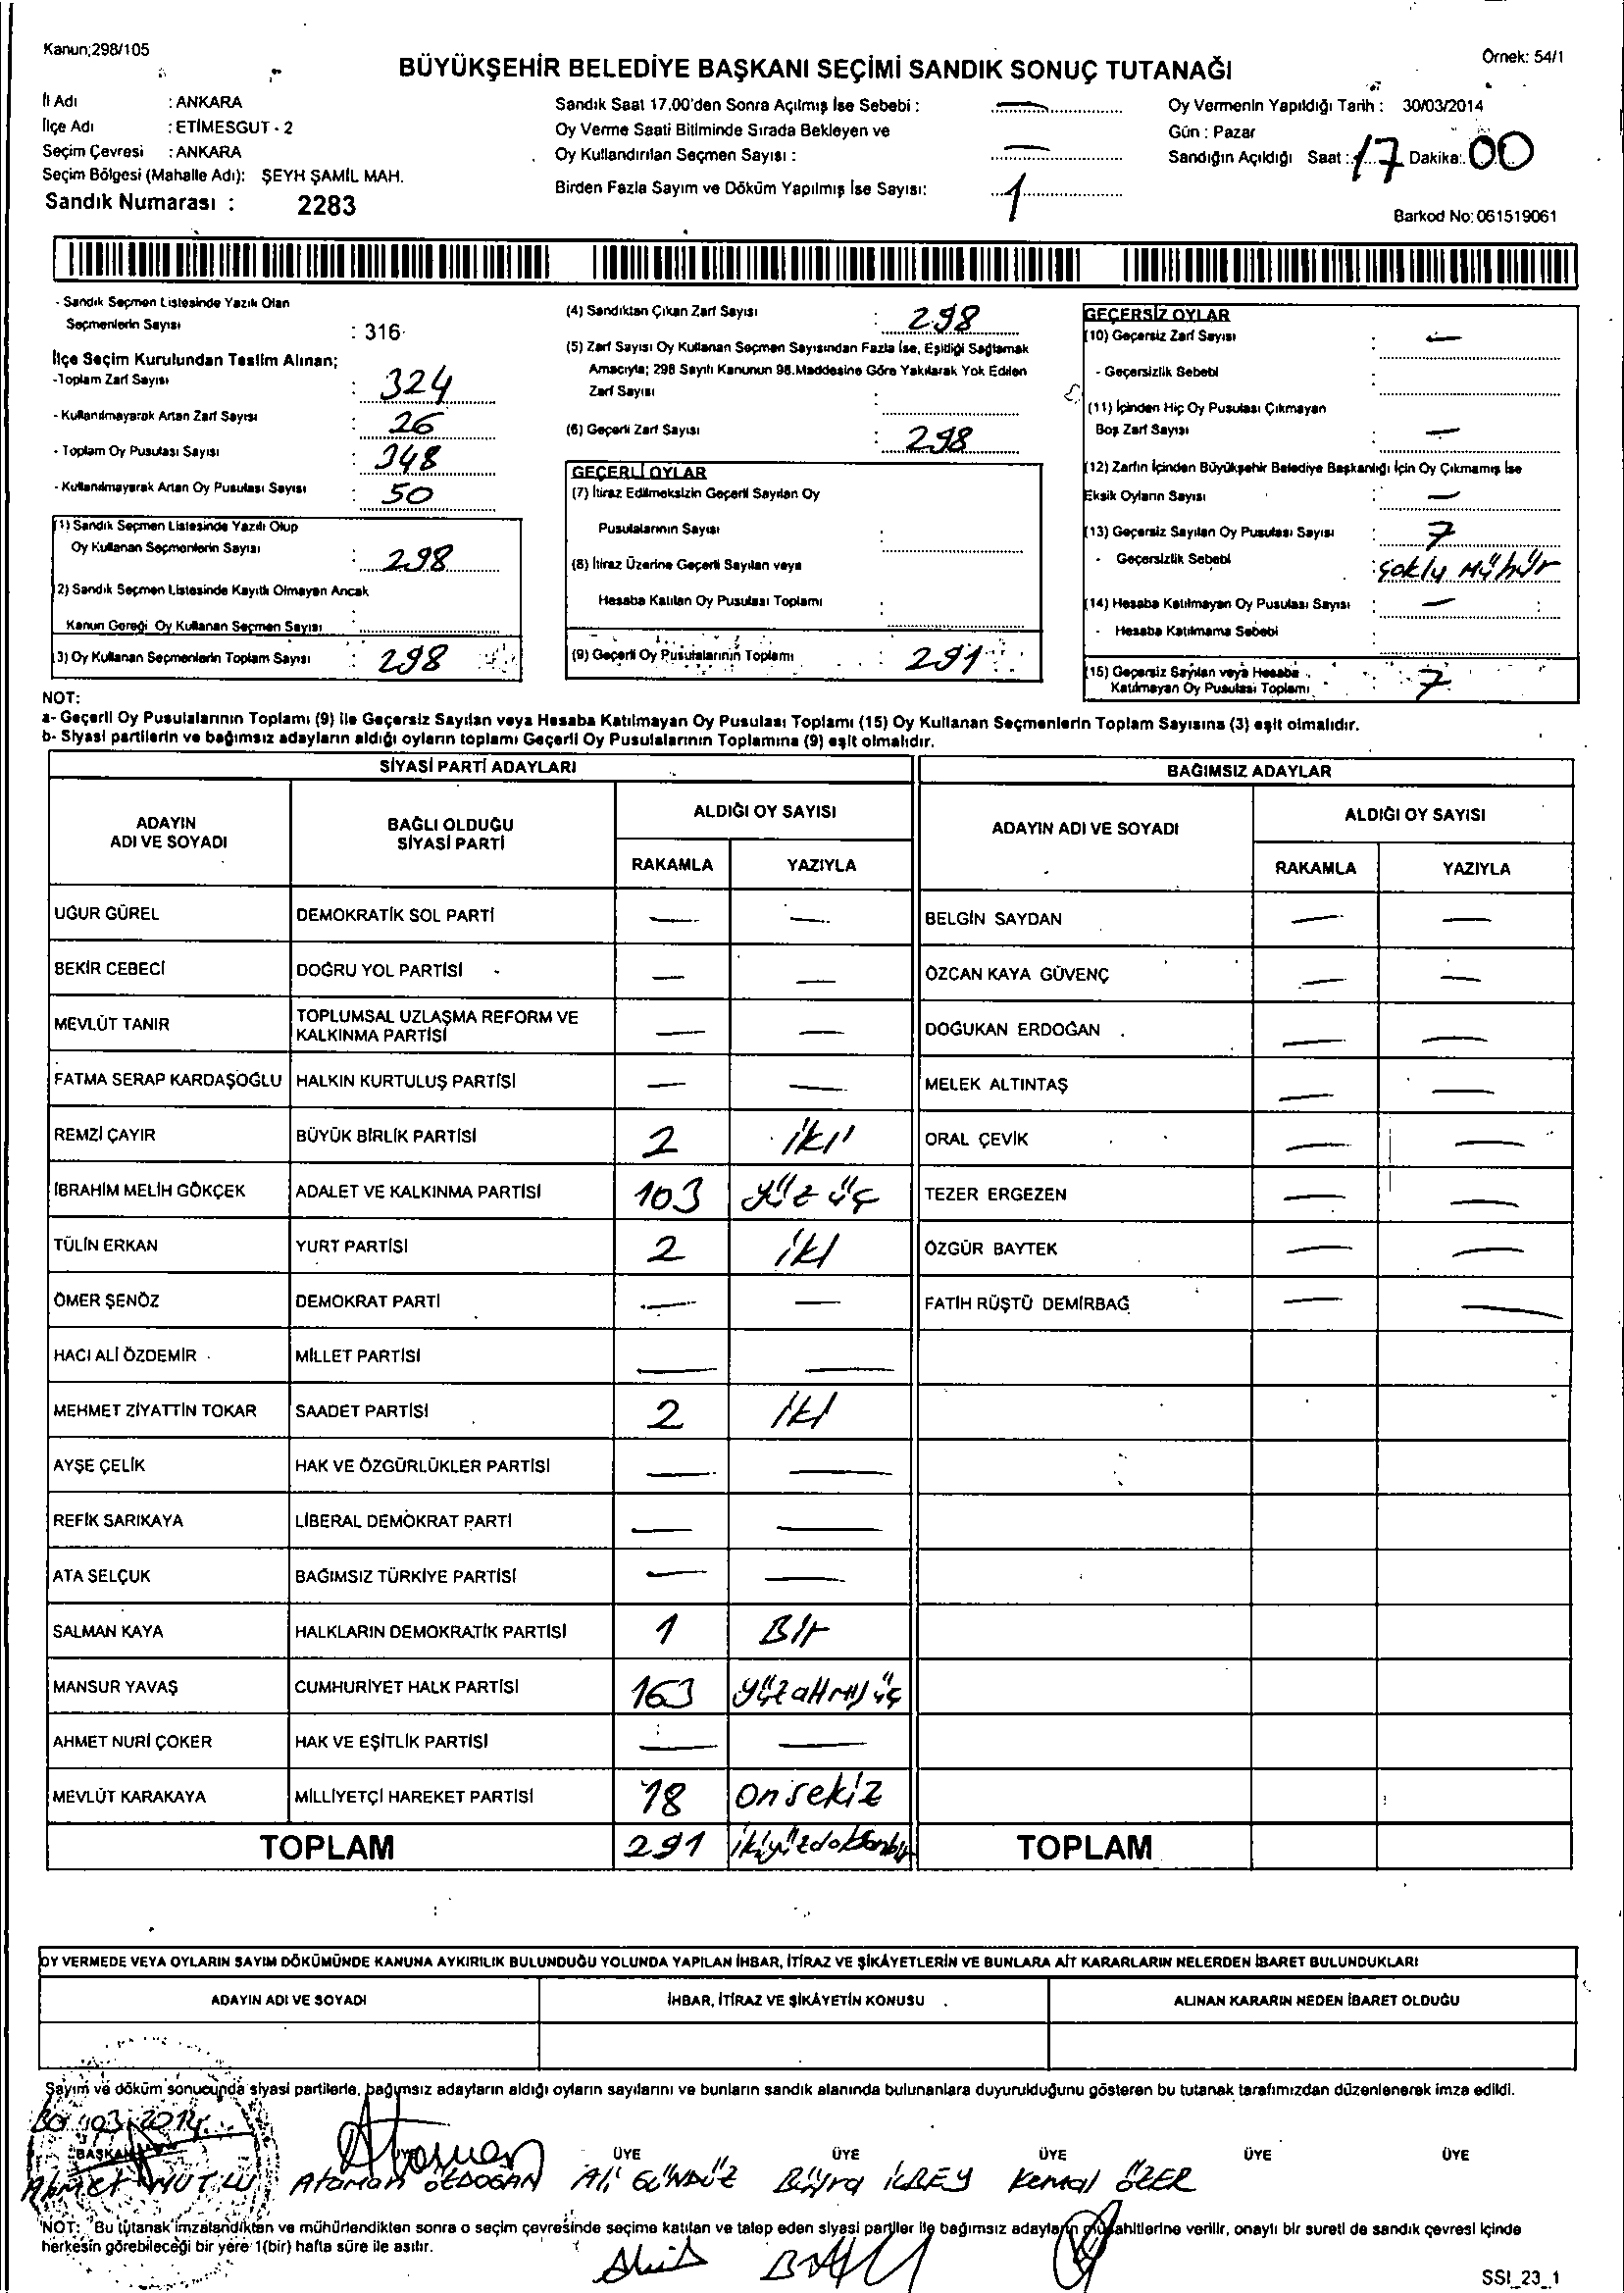 Kanun;298/105
Örnek: 54/1
BÜYÜKŞEHİR BELEDİYE BAŞKANI SEÇİMİ SANDIK SONUÇ TUTANAĞI
İl Adı : ANKARA
İlçe Adı : ETİMESGUT - 2
Seçim Çevresi : ANKARA
Seçim Bölgesi (Mahalle Adı): ŞEYH ŞAMİL MAH.
Sandık Numarası : 2283
Sandık Saat 17.00'den Sonra Açılmış İse Sebebi : —
Oy Verme Saati Bitiminde Sırada Bekleyen ve
Oy Kullandırılan Seçmen Sayısı : —
Birden Fazla Sayım ve Döküm Yapılmış İse Sayısı: 1
Oy Vermenin Yapıldığı Tarih : 30/03/2014
Gün : Pazar
Sandığın Açıldığı Saat : 17 Dakika: 00
Barkod No: 061519061
- Sandık Seçmen Listesinde Yazılı Olan
Seçmenlerin Sayısı : 316
İlçe Seçim Kurulundan Teslim Alınan;
-Toplam Zarf Sayısı : 324
- Kullanılmayarak Artan Zarf Sayısı : 26
- Toplam Oy Pusulası Sayısı : 348
- Kullanılmayarak Artan Oy Pusulası Sayısı : 50
(1) Sandık Seçmen Listesinde Yazılı Olup
Oy Kullanan Seçmenlerin Sayısı : 298
2) Sandık Seçmen Listesinde Kayıtlı Olmayan Ancak
Kanun Gereği Oy Kullanan Seçmen Sayısı :
(3) Oy Kullanan Seçmenlerin Toplam Sayısı : 298
(4) Sandıktan Çıkan Zarf Sayısı : 298
(5) Zarf Sayısı Oy Kullanan Seçmen Sayısından Fazla İse, Eşitliği Sağlamak
Amacıyla; 298 Sayılı Kanunun 98.Maddesine Göre Yakılarak Yok Edilen
Zarf Sayısı :
(6) Geçerli Zarf Sayısı : 298
GEÇERLİ OYLAR
(7) İtiraz Edilmeksizin Geçerli Sayılan Oy
Pusulalarının Sayısı :
(8) İtiraz Üzerine Geçerli Sayılan veya
Hesaba Katılan Oy Pusulası Toplamı :
(9) Geçerli Oy Pusulalarının Toplamı : 291
GEÇERSİZ OYLAR
(10) Geçersiz Zarf Sayısı : —
- Geçersizlik Sebebi :
(11) İçinden Hiç Oy Pusulası Çıkmayan
Boş Zarf Sayısı : —
(12) Zarfın İçinden Büyükşehir Belediye Başkanlığı İçin Oy Çıkmamış İse
Eksik Oyların Sayısı : —
(13) Geçersiz Sayılan Oy Pusulası Sayısı : 7
- Geçersizlik Sebebi : çoklu Mühür
(14) Hesaba Katılmayan Oy Pusulası Sayısı : —
- Hesaba Katılmama Sebebi :
(15) Geçersiz Sayılan veya Hesaba
Katılmayan Oy Pusulası Toplamı : 7
NOT:
a- Geçerli Oy Pusulalarının Toplamı (9) ile Geçersiz Sayılan veya Hesaba Katılmayan Oy Pusulası Toplamı (15) Oy Kullanan Seçmenlerin Toplam Sayısına (3) eşit olmalıdır.
b- Siyasi partilerin ve bağımsız adayların aldığı oyların toplamı Geçerli Oy Pusulalarının Toplamına (9) eşit olmalıdır.
SİYASİ PARTİ ADAYLARI
ADAYIN ADI VE SOYADI BAĞLI OLDUĞU SİYASİ PARTİ ALDIĞI OY SAYISI
RAKAMLA YAZIYLA
UĞUR GÜREL DEMOKRATİK SOL PARTİ — —
BEKİR CEBECİ DOĞRU YOL PARTİSİ — —
MEVLÜT TANIR TOPLUMSAL UZLAŞMA REFORM VE KALKINMA PARTİSİ — —
FATMA SERAP KARDAŞOĞLU HALKIN KURTULUŞ PARTİSİ — —
REMZİ ÇAYIR BÜYÜK BİRLİK PARTİSİ 2 iki
İBRAHİM MELİH GÖKÇEK ADALET VE KALKINMA PARTİSİ 103 yüz üç
TÜLİN ERKAN YURT PARTİSİ 2 iki
ÖMER ŞENÖZ DEMOKRAT PARTİ — —
HACI ALİ ÖZDEMİR MİLLET PARTİSİ — —
MEHMET ZİYATTİN TOKAR SAADET PARTİSİ 2 iki
AYŞE ÇELİK HAK VE ÖZGÜRLÜKLER PARTİSİ — —
REFİK SARIKAYA LİBERAL DEMOKRAT PARTİ — —
ATA SELÇUK BAĞIMSIZ TÜRKİYE PARTİSİ — —
SALMAN KAYA HALKLARIN DEMOKRATİK PARTİSİ 1 Bir
MANSUR YAVAŞ CUMHURİYET HALK PARTİSİ 163 yüzaltmışüç
AHMET NURİ ÇOKER HAK VE EŞİTLİK PARTİSİ — —
MEVLÜT KARAKAYA MİLLİYETÇİ HAREKET PARTİSİ 18 onsekiz
TOPLAM 291 ikiyüzdoksanbir
BAĞIMSIZ ADAYLAR
ADAYIN ADI VE SOYADI ALDIĞI OY SAYISI
RAKAMLA YAZIYLA
BELGİN SAYDAN — —
ÖZCAN KAYA GÜVENÇ — —
DOĞUKAN ERDOĞAN — —
MELEK ALTINTAŞ — —
ORAL ÇEVİK — —
TEZER ERGEZEN — —
ÖZGÜR BAYTEK — —
FATİH RÜŞTÜ DEMİRBAĞ — —
TOPLAM
OY VERMEDE VEYA OYLARIN SAYIM DÖKÜMÜNDE KANUNA AYKIRILIK BULUNDUĞU YOLUNDA YAPILAN İHBAR, İTİRAZ VE ŞİKÂYETLERİN VE BUNLARA AİT KARARLARIN NELERDEN İBARET BULUNDUKLARI
ADAYIN ADI VE SOYADI İHBAR, İTİRAZ VE ŞİKÂYETİN KONUSU ALINAN KARARIN NEDEN İBARET OLDUĞU
Sayım ve döküm sonucunda siyasi partilerle, bağımsız adayların aldığı oyların sayılarını ve bunların sandık alanında bulunanlara duyurulduğunu gösteren bu tutanak tarafımızdan düzenlenerek imza edildi.
30.03.2014
BAŞKAN ÜYE ÜYE ÜYE ÜYE ÜYE ÜYE
Ahmet MUTLU Ataman ÖZDOĞAN Ali GÜNDÜZ Büşra İLBEY Kemal ÖZER
NOT: Bu tutanak imzalandıktan ve mühürlendikten sonra o seçim çevresinde seçime katılan ve talep eden siyasi partiler ile bağımsız adayların müşahitlerine verilir, onaylı bir sureti de sandık çevresi içinde
herkesin görebileceği bir yere 1(bir) hafta süre ile asılır.
SSI_23_1